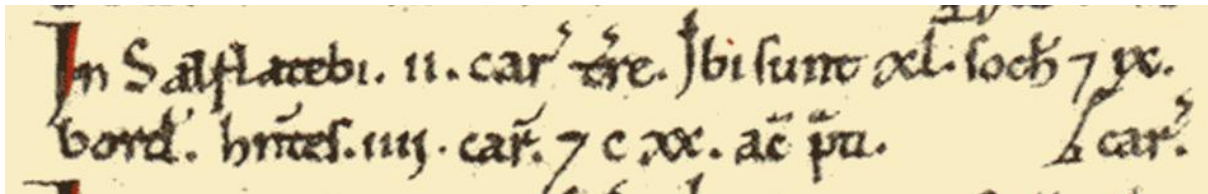 In Salflatebi. ii. car̛ t̛re. Ibi sunt xl. soch̄ ⁊ ix.
bord̛. hn̄tes. iiij. car̄. ⁊ c xx. ac̄ p̄ti. car̛.